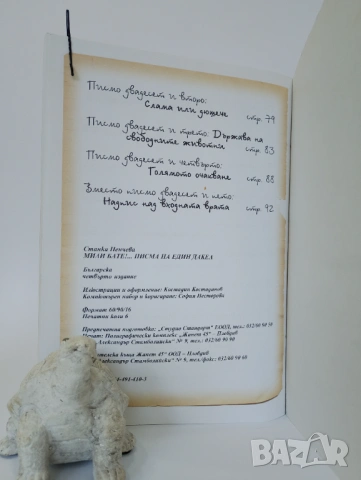 Писмо двадесет и второ:
Слама или дюшече стр. 79
Писмо двадесет и трето: Държава на
свободните животни стр. 83
Писмо двадесет и четвърто:
Голямото очакване стр. 88
Вместо писмо двадесет и пето:
Надпис над входната врата стр. 92
Станка Пенчева
МИЛИ БАТЕ!... ПИСМА НА ЕДИН ДАКЕЛ
Българска
четвърто издание
Илюстрации и оформление: Костадин Костадинов
Компютърен набор и коригиране: София Несторова
Формат 60/90/16
Печатни коли 6
Предпечатна подготовка: „Студио Стандарт" ЕООД, тел.: 032/60 90 10
Печат: Полиграфически комплекс „Жанет 45" – Пловдив
Александър Стамболийски" № 9, тел.: 032/60 90 90
къща Жанет 45" ООД – Пловдив
Александър Стамболийски" № 9, тел./факс.: 032/60 90
-491-410-3
BAZAR
bg